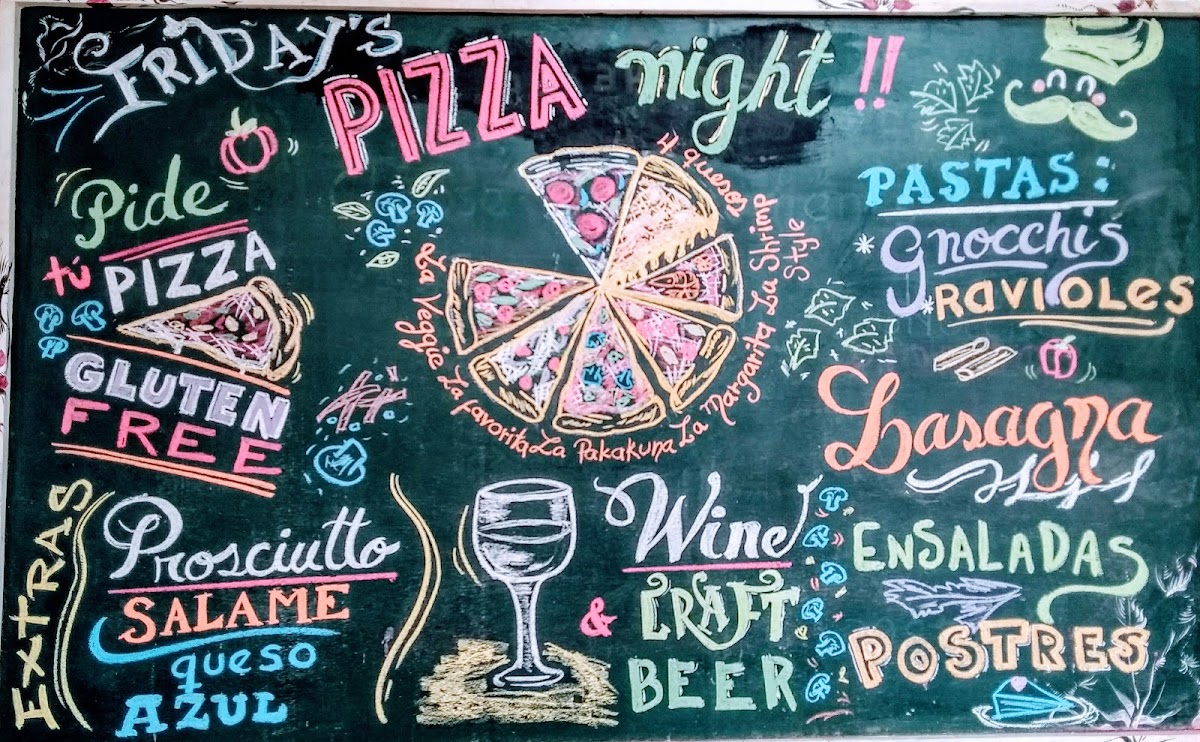 FRIDAY'S
PIZZA night!!
Pide
tú PIZZA
GLUTEN
FREE
4 quesos
La Shrimp
Style
La Margarita
La Pakakuna
La favorita
La Veggie
PASTAS:
* Gnocchis
* RAVIOLES
Lasagna
EXTRAS
Prosciutto
SALAME
queso
AZUL
Wine
& CRAFT
BEER
ENSALADAS
POSTRES